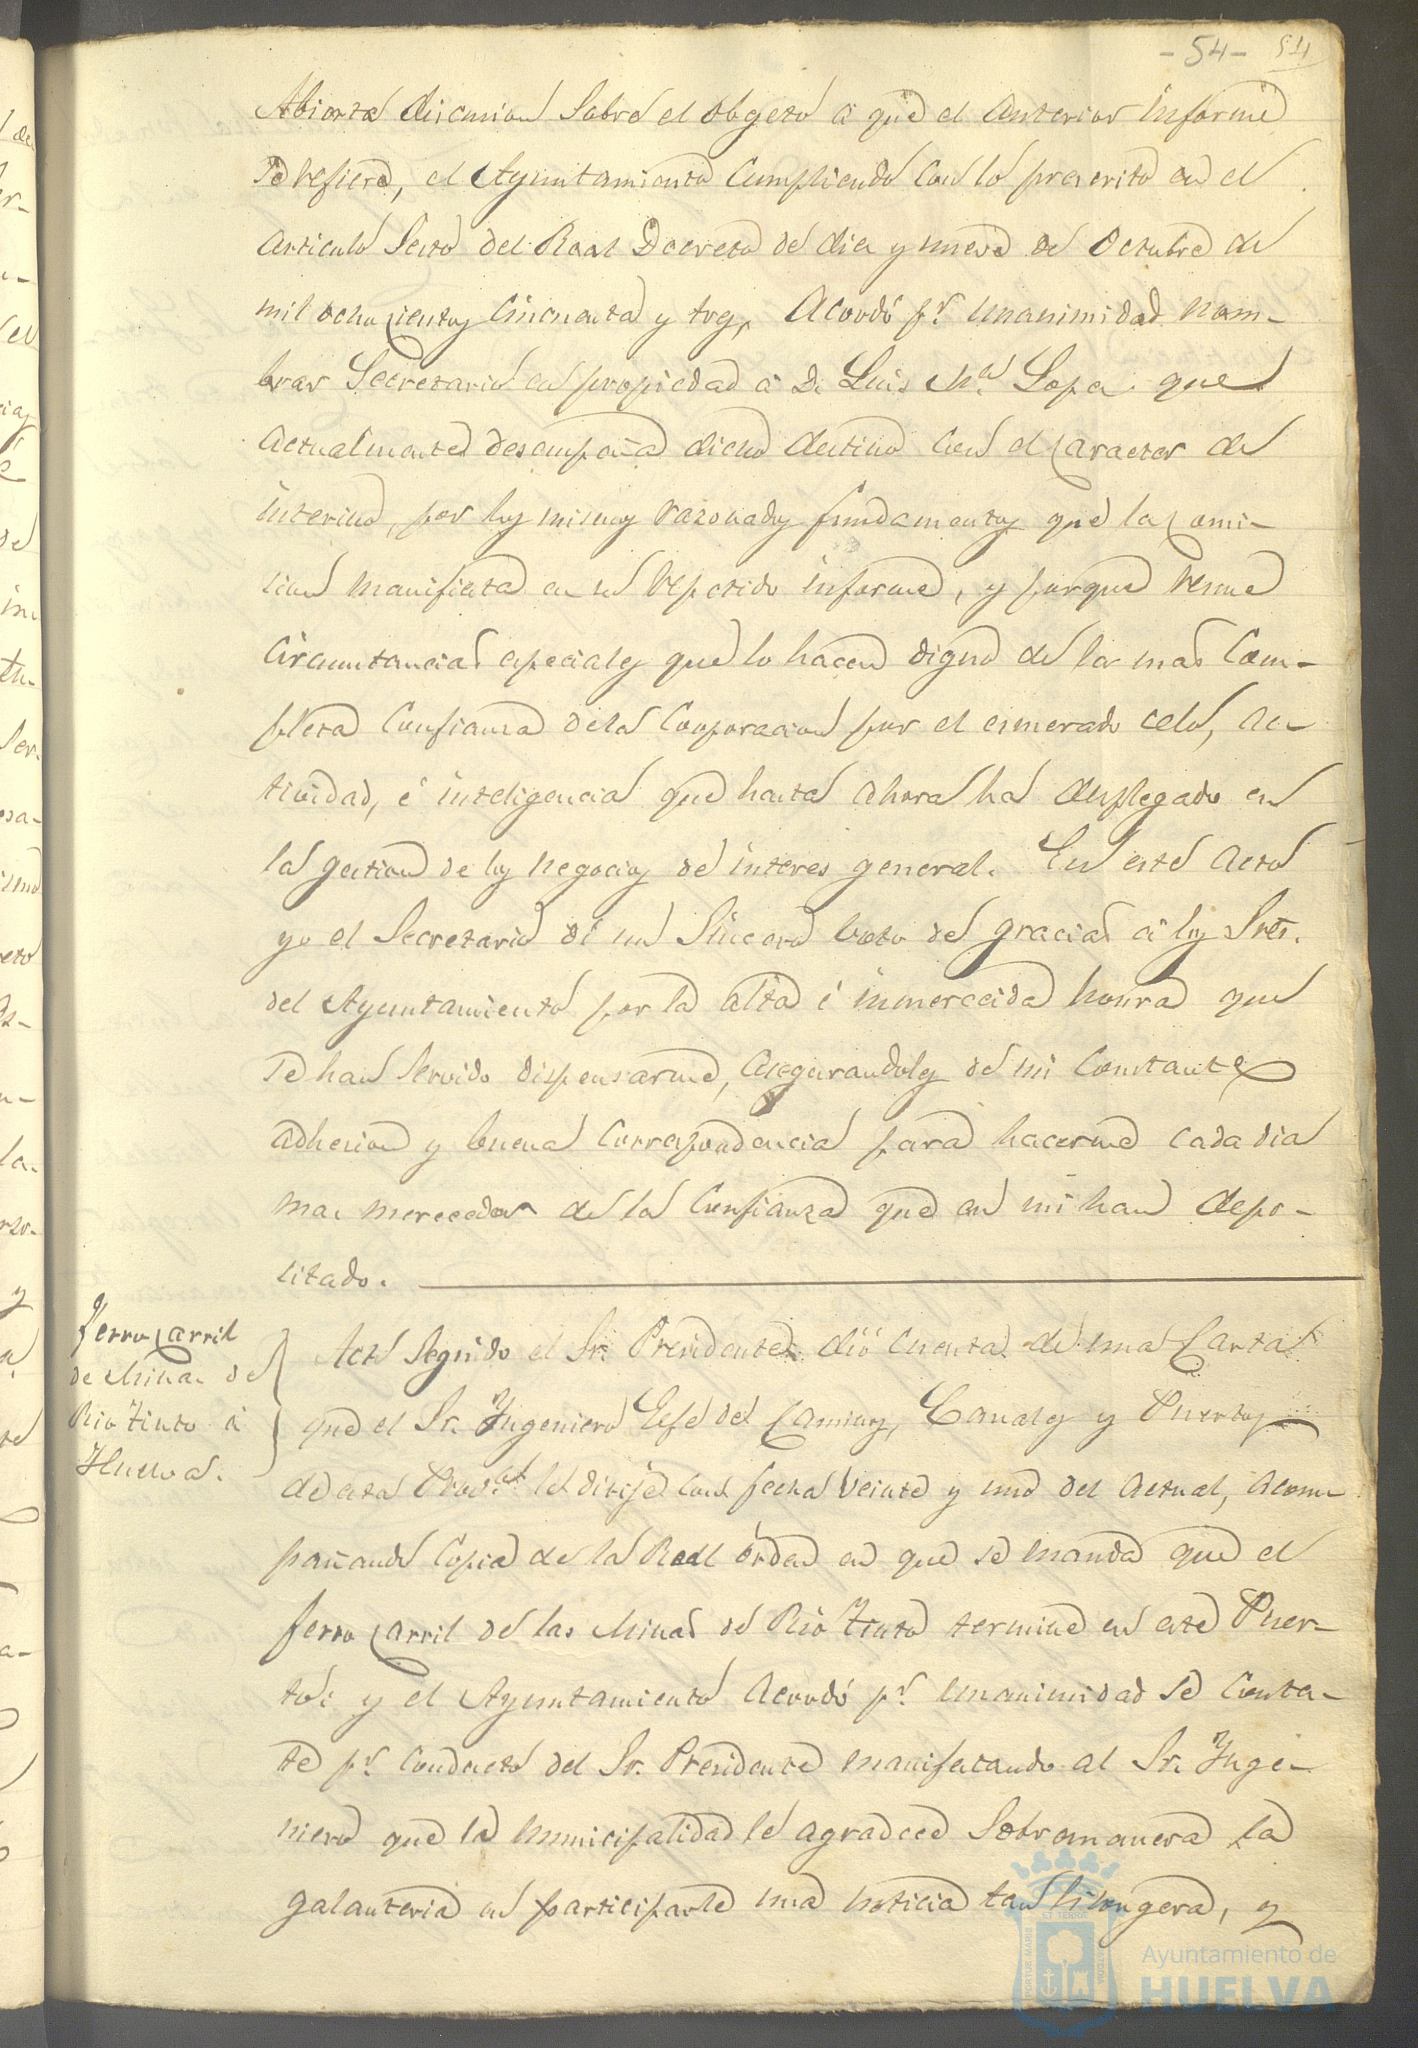 - 54 - 54
Abierta discusion sobre el obgeto á que el anterior informe
se refiere, el Ayuntamiento cumpliendo con lo prescrito en el
articulo sesto del Real Decreto de diez y nueve de Octubre de
mil ochocientos cincuenta y tres, acordó pr. unanimidad nom-
brar Secretario en propiedad á D. Luis Ma. Lopez que
actualmente desempeña dicho destino con el caracter de
interino, por los mismos razonados fundamentos que la comi-
sion manifiesta en su repetido informe, y porque reune
circunstancias especiales que lo hacen digno de la mas com-
pleta confianza de la Corporacion por el esmerado celo, ac-
tividad, é inteligencia que hasta ahora ha desplegado en
la gestion de los negocios de interes general. En este acto
yo el Secretario dí un sincero voto de gracias á los Sres.
del Ayuntamiento por la alta é inmerecida honra que
se han servido dispensarme, asegurandoles de mi constante
adhesion y buena correspondencia para hacerme cada dia
mas merecedor de la confianza que en mi han depo-
sitado.
Ferro carril
de Minas de
Rio Tinto á
Huelva.
Acto seguido el Sr. Presidente dió cuenta de una carta
que el Sr. Ingeniero Gefe de Caminos, Canales y Puertos
de esta Prova. le dirije con fecha veinte y uno del actual, acom-
pañando copia de la Real órden en que se manda que el
ferro carril de las Minas de Rio Tinto termine en este Puer-
to: y el Ayuntamiento acordó pr. unanimidad se contes-
te pr. conducto del Sr. Presidente manifestando al Sr. Inge-
niero que la municipalidad le agradece sobremanera la
galanteria en participarle una noticia tan lisongera, y
Ayuntamiento de
HUELVA